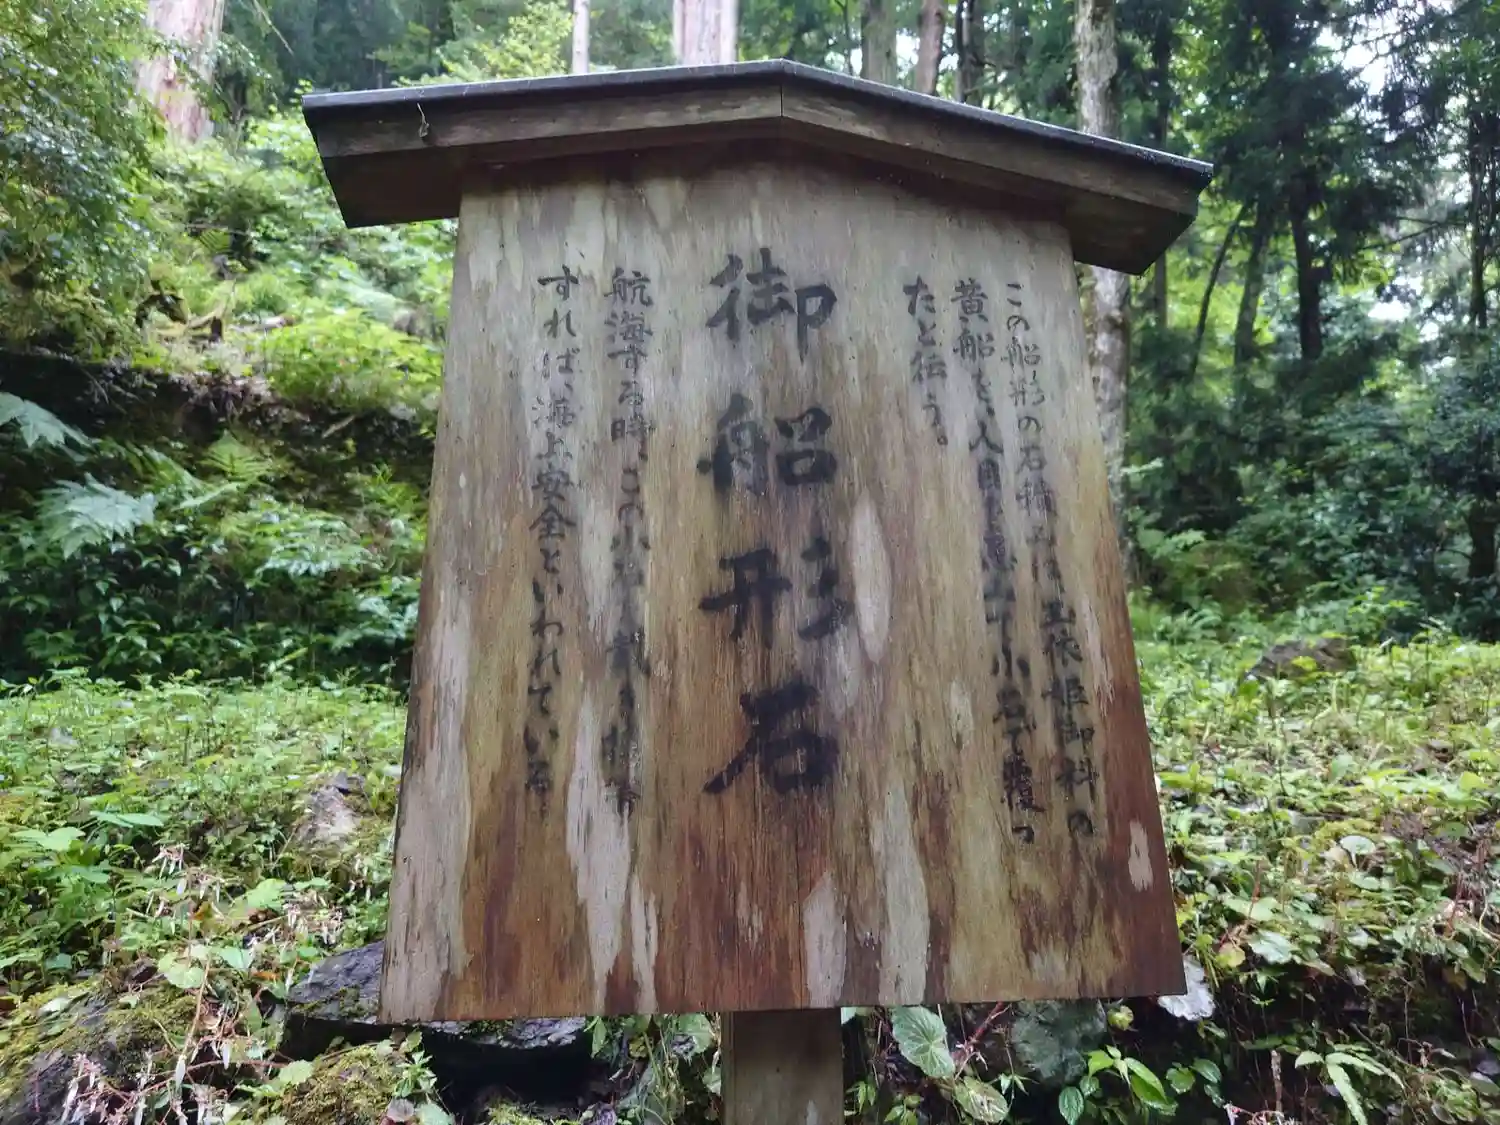 この船形の石積は玉依姫御料の
黄船を、人目に忌みて小石で覆っ
たと伝う。
御船形石
航海する時、この小石を戴き携帯
すれば、海上安全といわれている